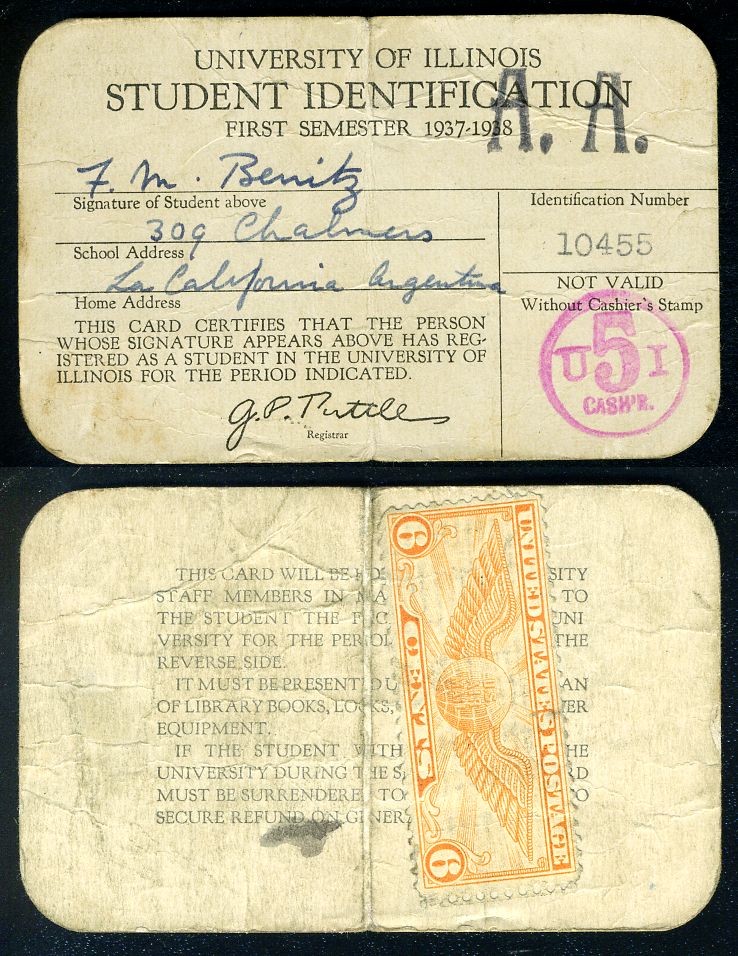 UNIVERSITY OF ILLINOIS
STUDENT IDENTIFICATION
FIRST SEMESTER 1937-1938
A. A.
F. M. Benitz
Signature of Student above
309 Chalmers
School Address
La California Argentina
Home Address
Identification Number
10455
NOT VALID
Without Cashier's Stamp
U 5 I
CASH'R.
THIS CARD CERTIFIES THAT THE PERSON
WHOSE SIGNATURE APPEARS ABOVE HAS REG-
ISTERED AS A STUDENT IN THE UNIVERSITY OF
ILLINOIS FOR THE PERIOD INDICATED.
G. P. Tuttle
Registrar
THIS CARD WILL BE
STAFF MEMBERS IN TO
THE STUDENT THE UNI
VERSITY FOR THE THE
REVERSE SIDE.
IT MUST BE PRESENT
OF LIBRARY BOOKS, LOCKS,
EQUIPMENT.
IF THE STUDENT WITH
UNIVERSITY DURING THE
MUST BE SURRENDERED TO TO
SECURE REFUND ON
UNITED STATES POSTAGE
6 CENTS 6